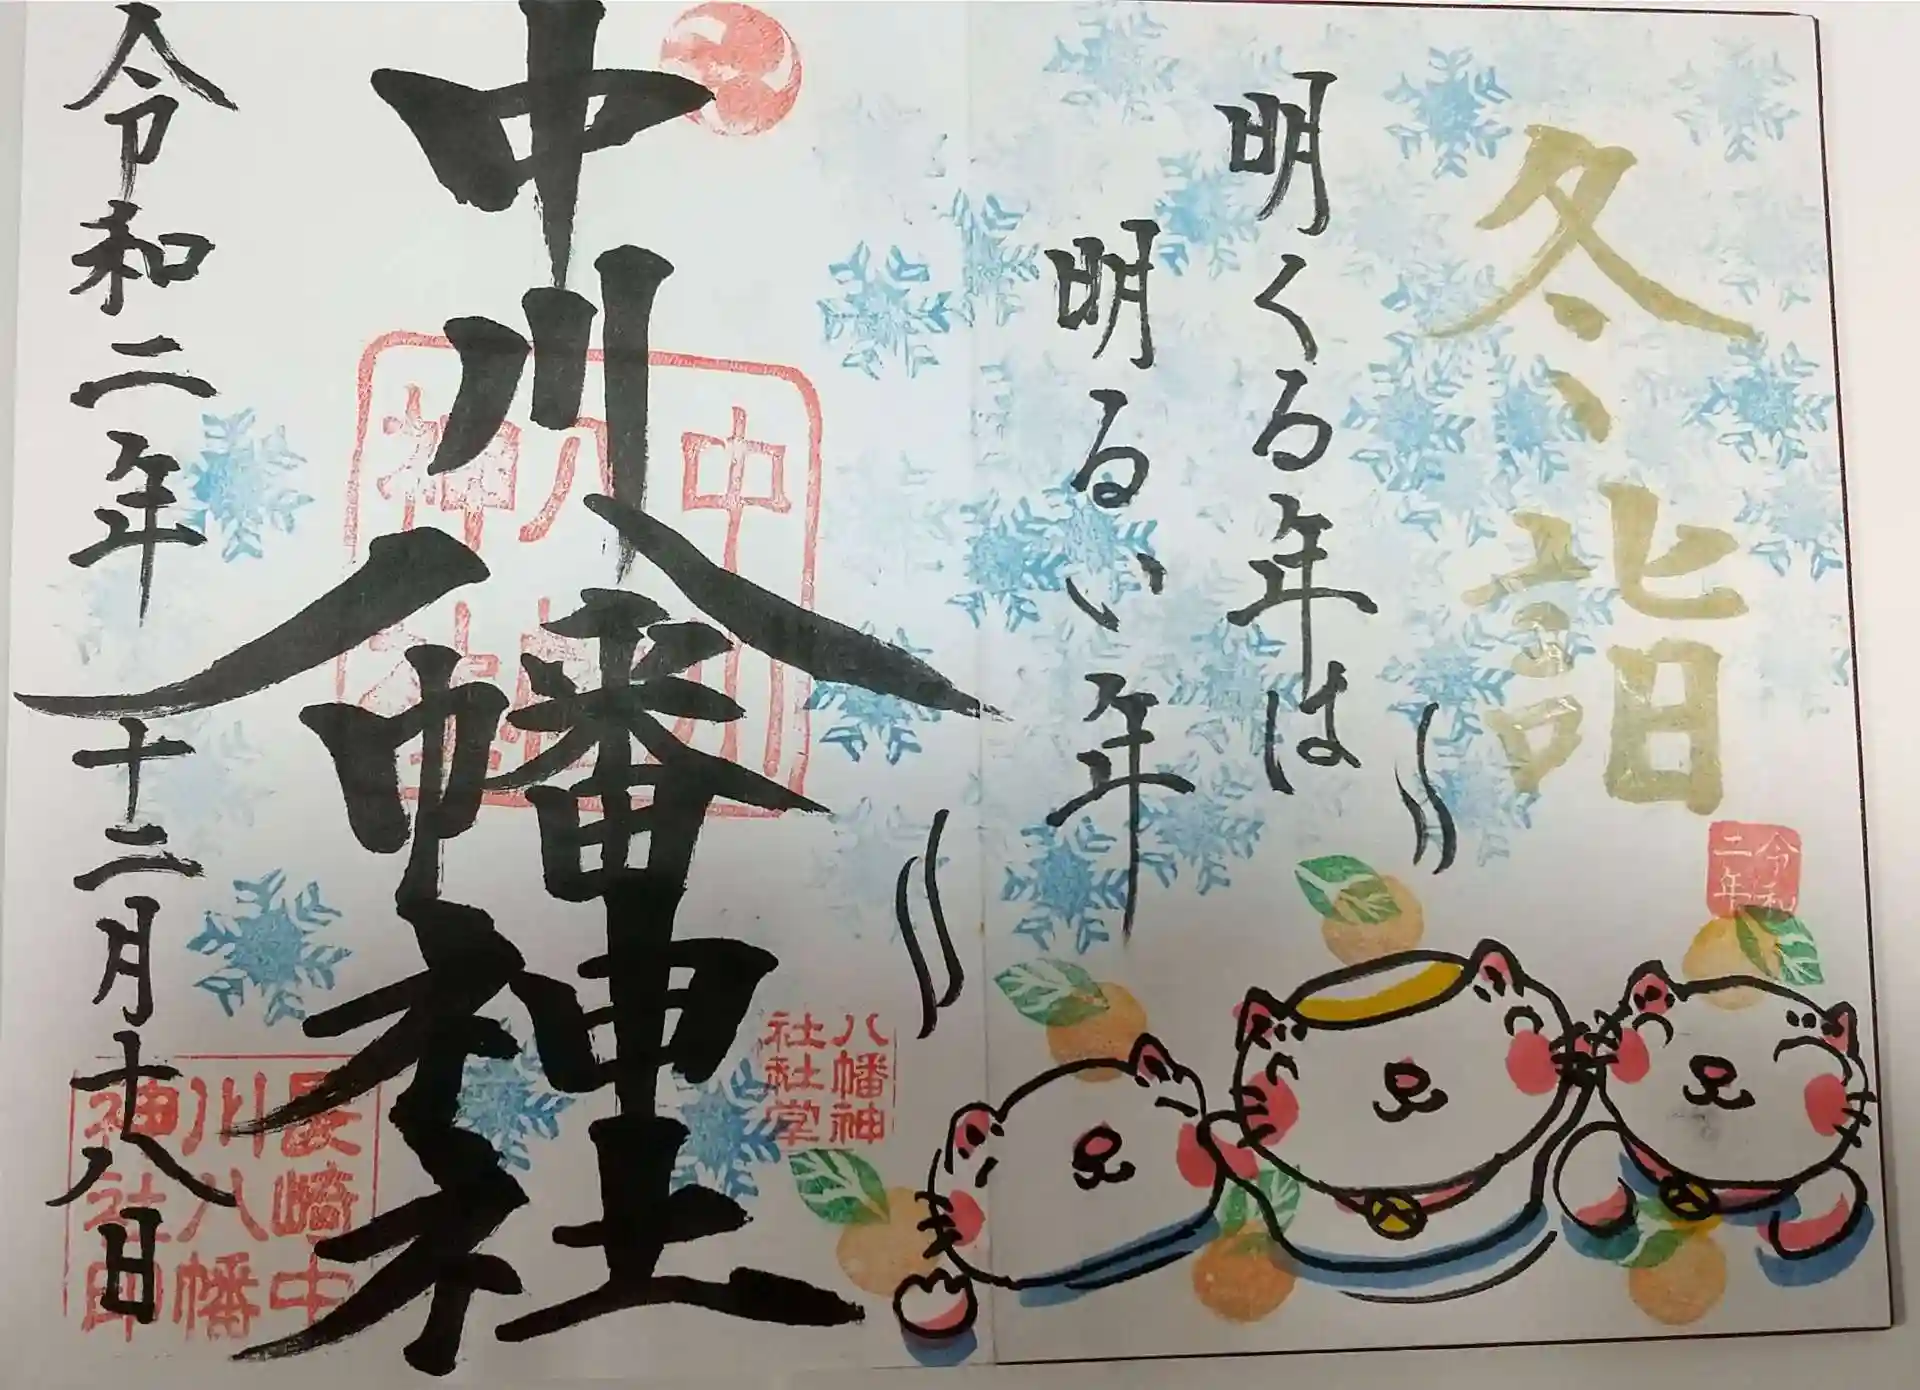 冬詣
明くる年は
明るい年
令和
二年
中川八幡神社
八幡神
社社堂
令和二年十二月十八日
長崎中
川八幡
神社印